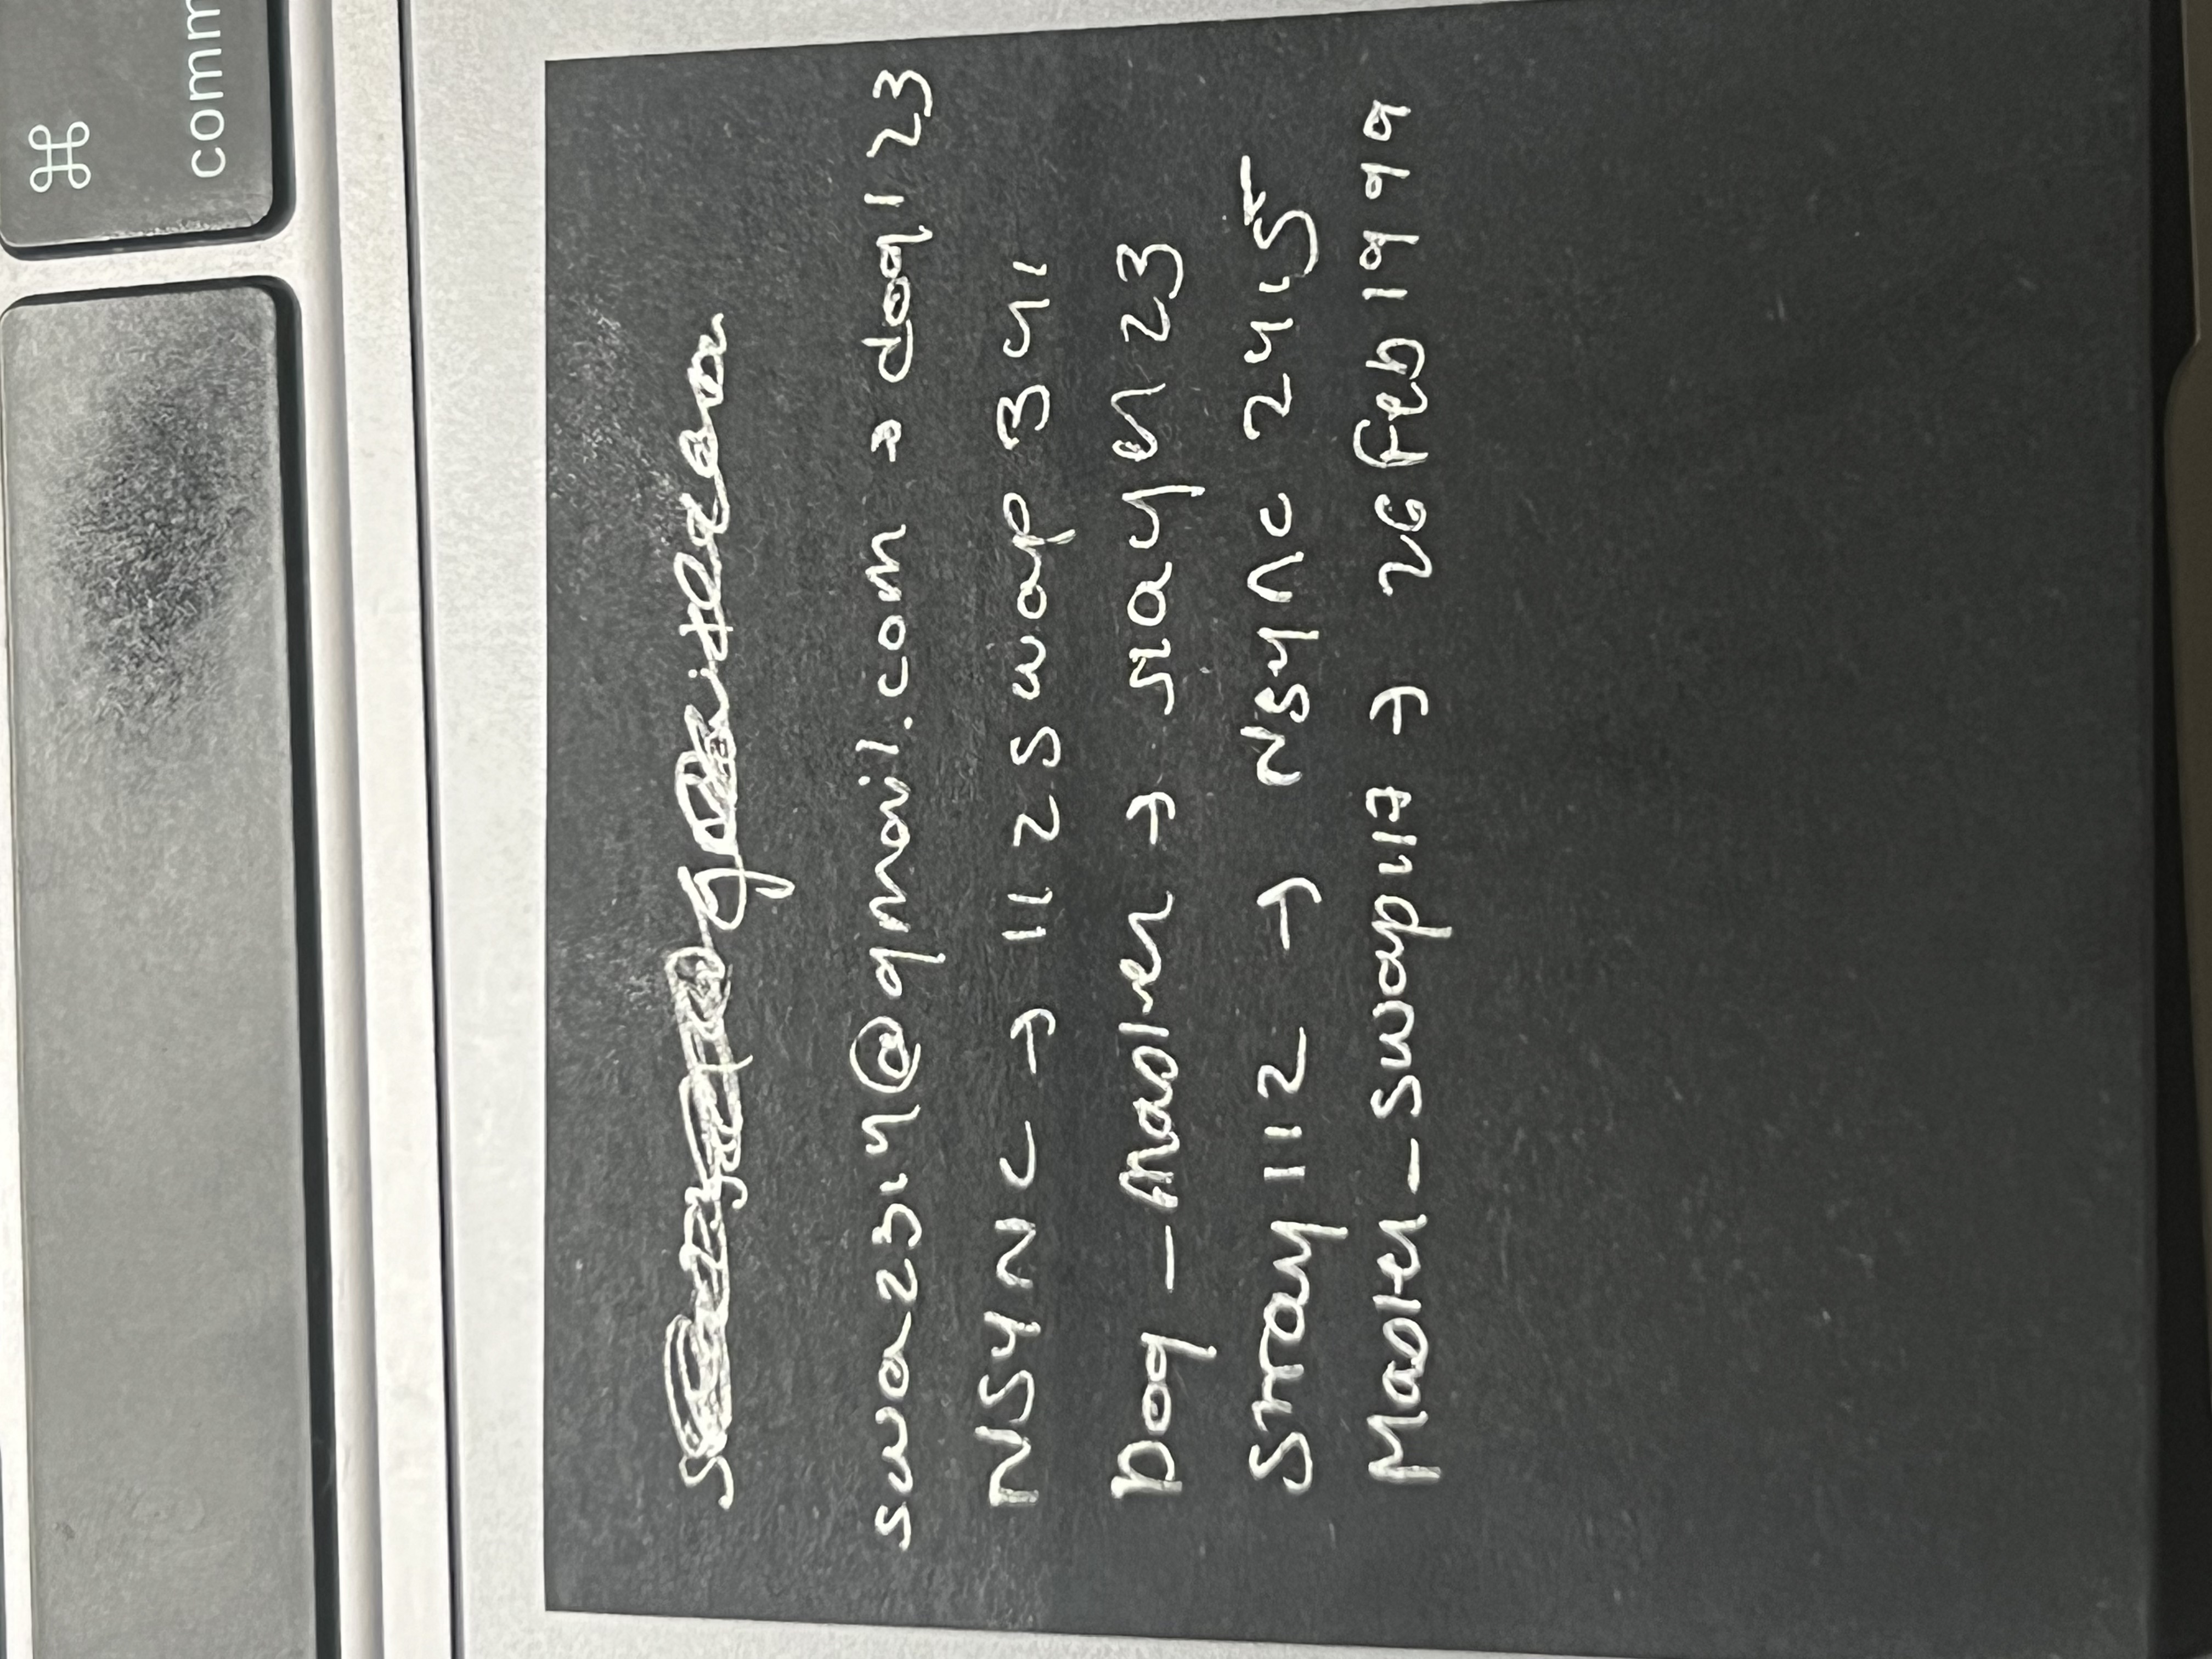 ⌘
comm
swa2314@gmail.com → dog123
NSYNC → 112swap341
Dog_Master → slayer23
Stray112 → Nsync2415
Master_swap117 → 26Feb1999